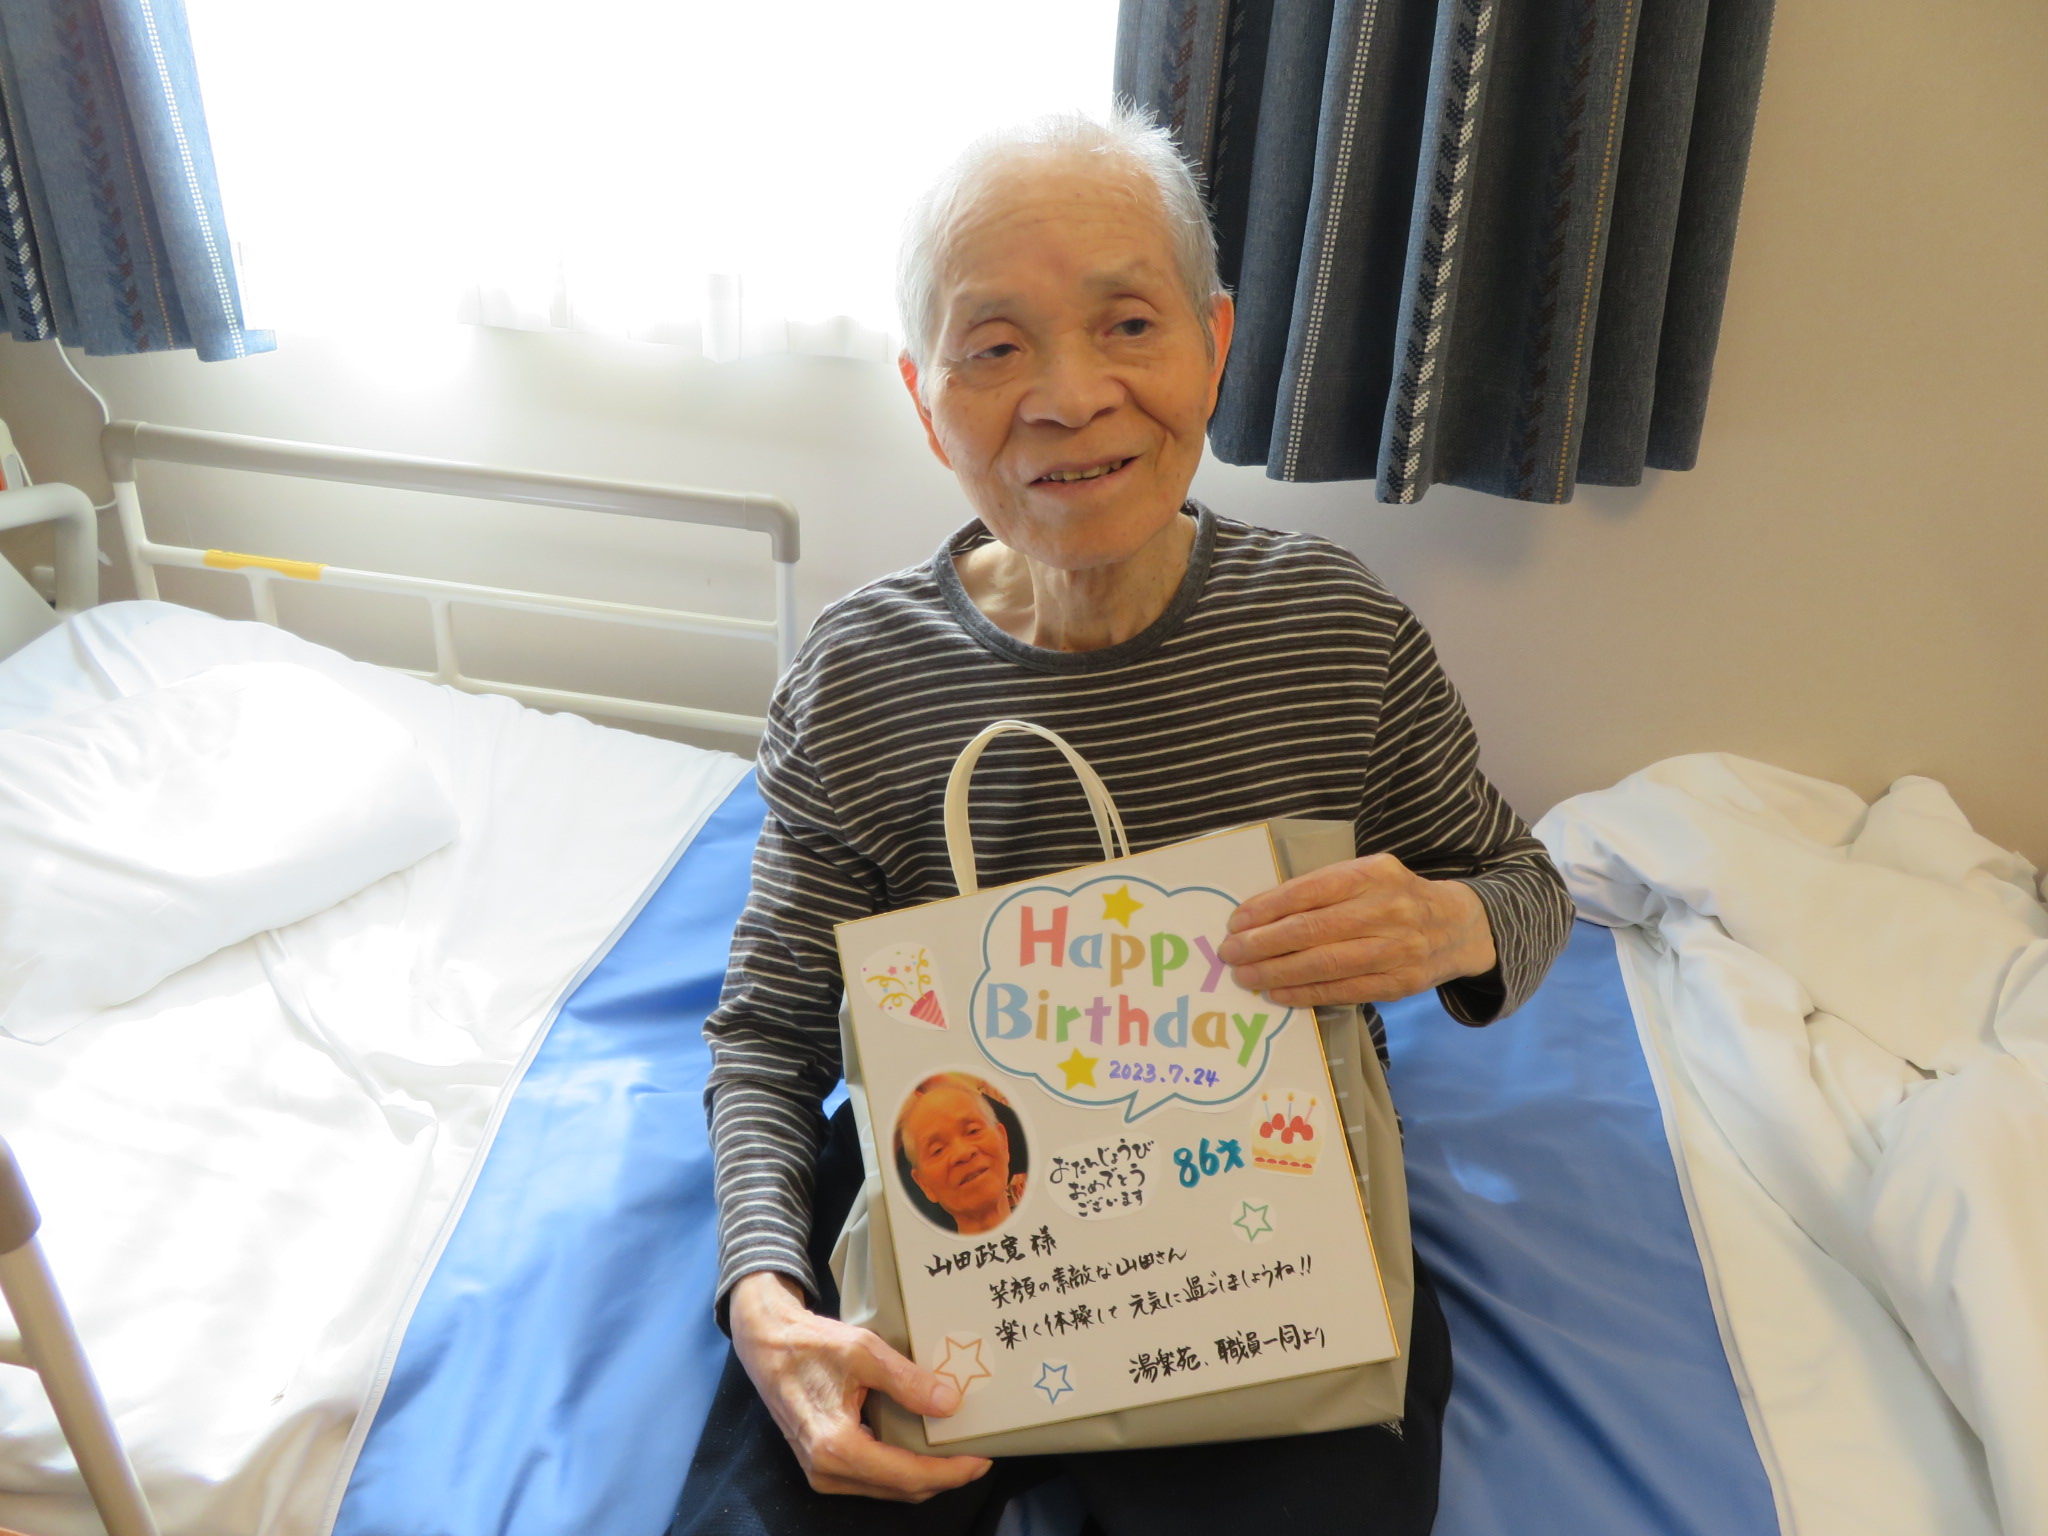 Happy
Birthday
2023.7.24
おたんじょうび
おめでとう
ございます
86才
山田政寛 様
笑顔の素敵な山田さん
楽しく体操して 元気に過ごしましょうね!!
湯楽苑、職員一同より